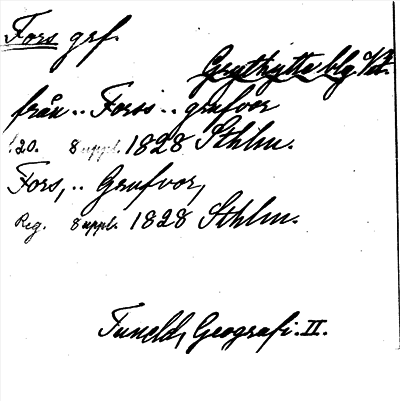 Fors grf.
Grythytte blg. V/stl.
från .. Forss .. grufvor
:20. 8 uppl. 1828 Sthlm.
Fors, .. Grufvor,
Reg. 8 uppl. 1828 Sthlm.
Tuneld, Geografi. II.